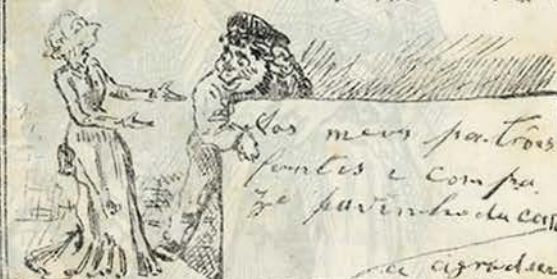 Aos meus patrões
fontes e compa.
Ze povinho da casa
agradec